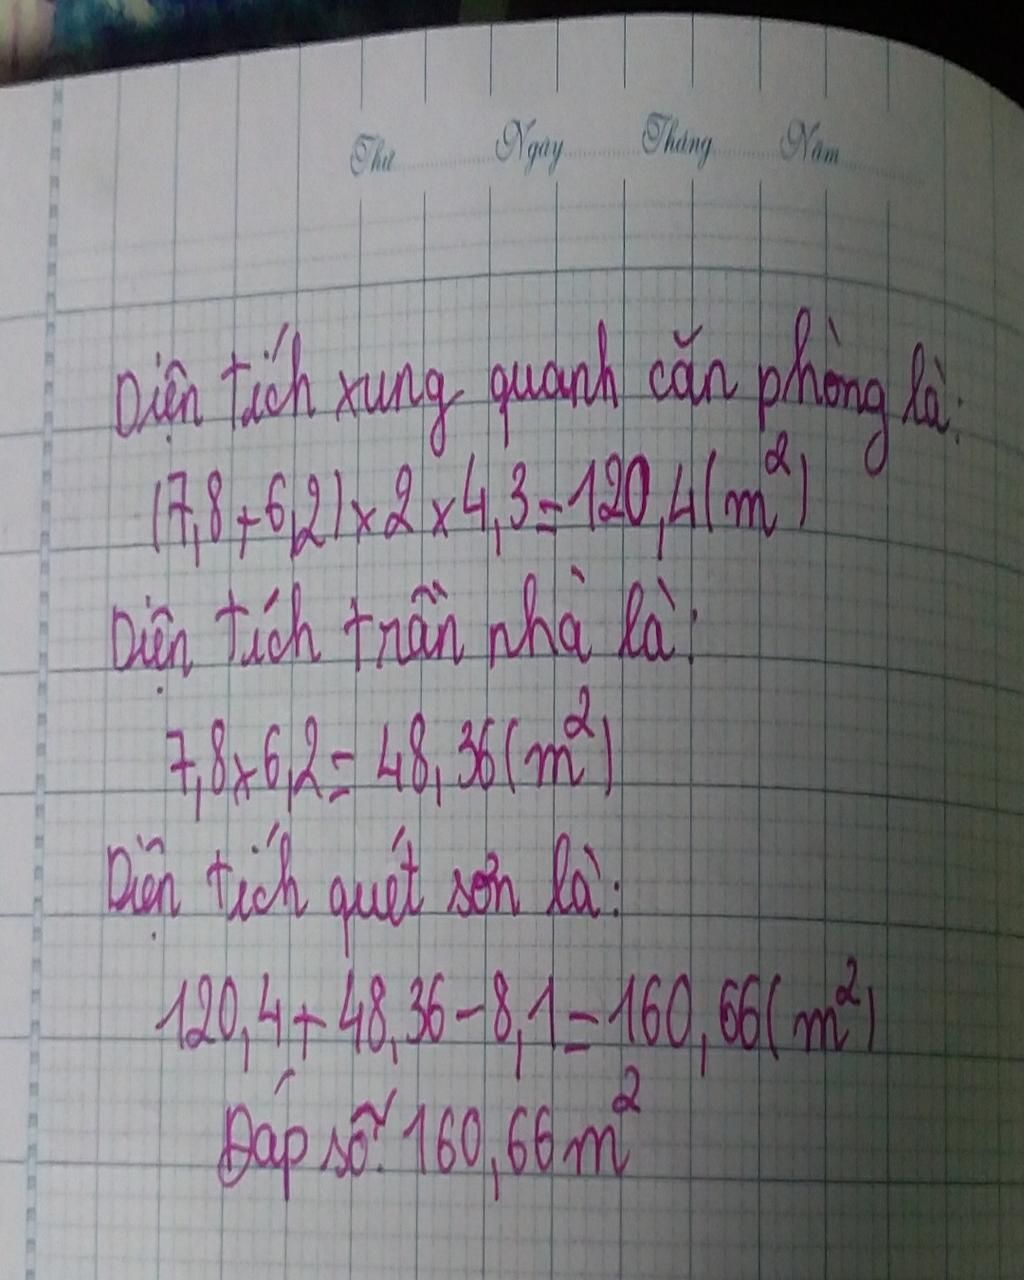 Thứ Ngày Tháng Năm
Diện tích xung quanh căn phòng là:
(7,8+6,2)×2×4,3=120,4(m²)
Diện tích trần nhà là:
7,8×6,2=48,36(m²)
Diện tích quét sơn là:
120,4+48,36-8,1=160,66(m²)
Đáp số: 160,66m²